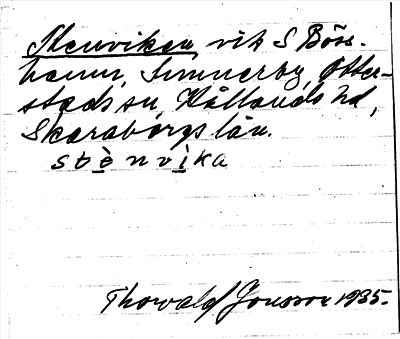 Stenviken, vik S Böss-
hamn, Sunnerby, Otter-
stads sn, Kållands hd,
Skaraborgs län.
stènvika
Thorvald Jonsson 1935.